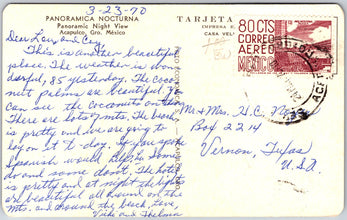 3-23-70
PANORAMICA NOCTURNA
Panoramic Night View
Acapulco, Gro. México
Dear Len and
This is another beautiful
place. The weather is won
derful, 85 yesterday. The Coco
nut palms are beautiful. You
can see the coconuts on them.
There are lots of mts. The beach
is pretty and we are going to
lay on it to-day. If you spoke
Spanish would help. Some
do and some don't. The hotel
is pretty and at night the lights
are beautiful all around on the
Mts. and around the beach. Love,
and Thelma
TARJETA
80 CTS
CORREO
AEREO
MEXICO
Mr & Mrs. H.C.
Box 2214
Vernon, Texas
U.S.A.